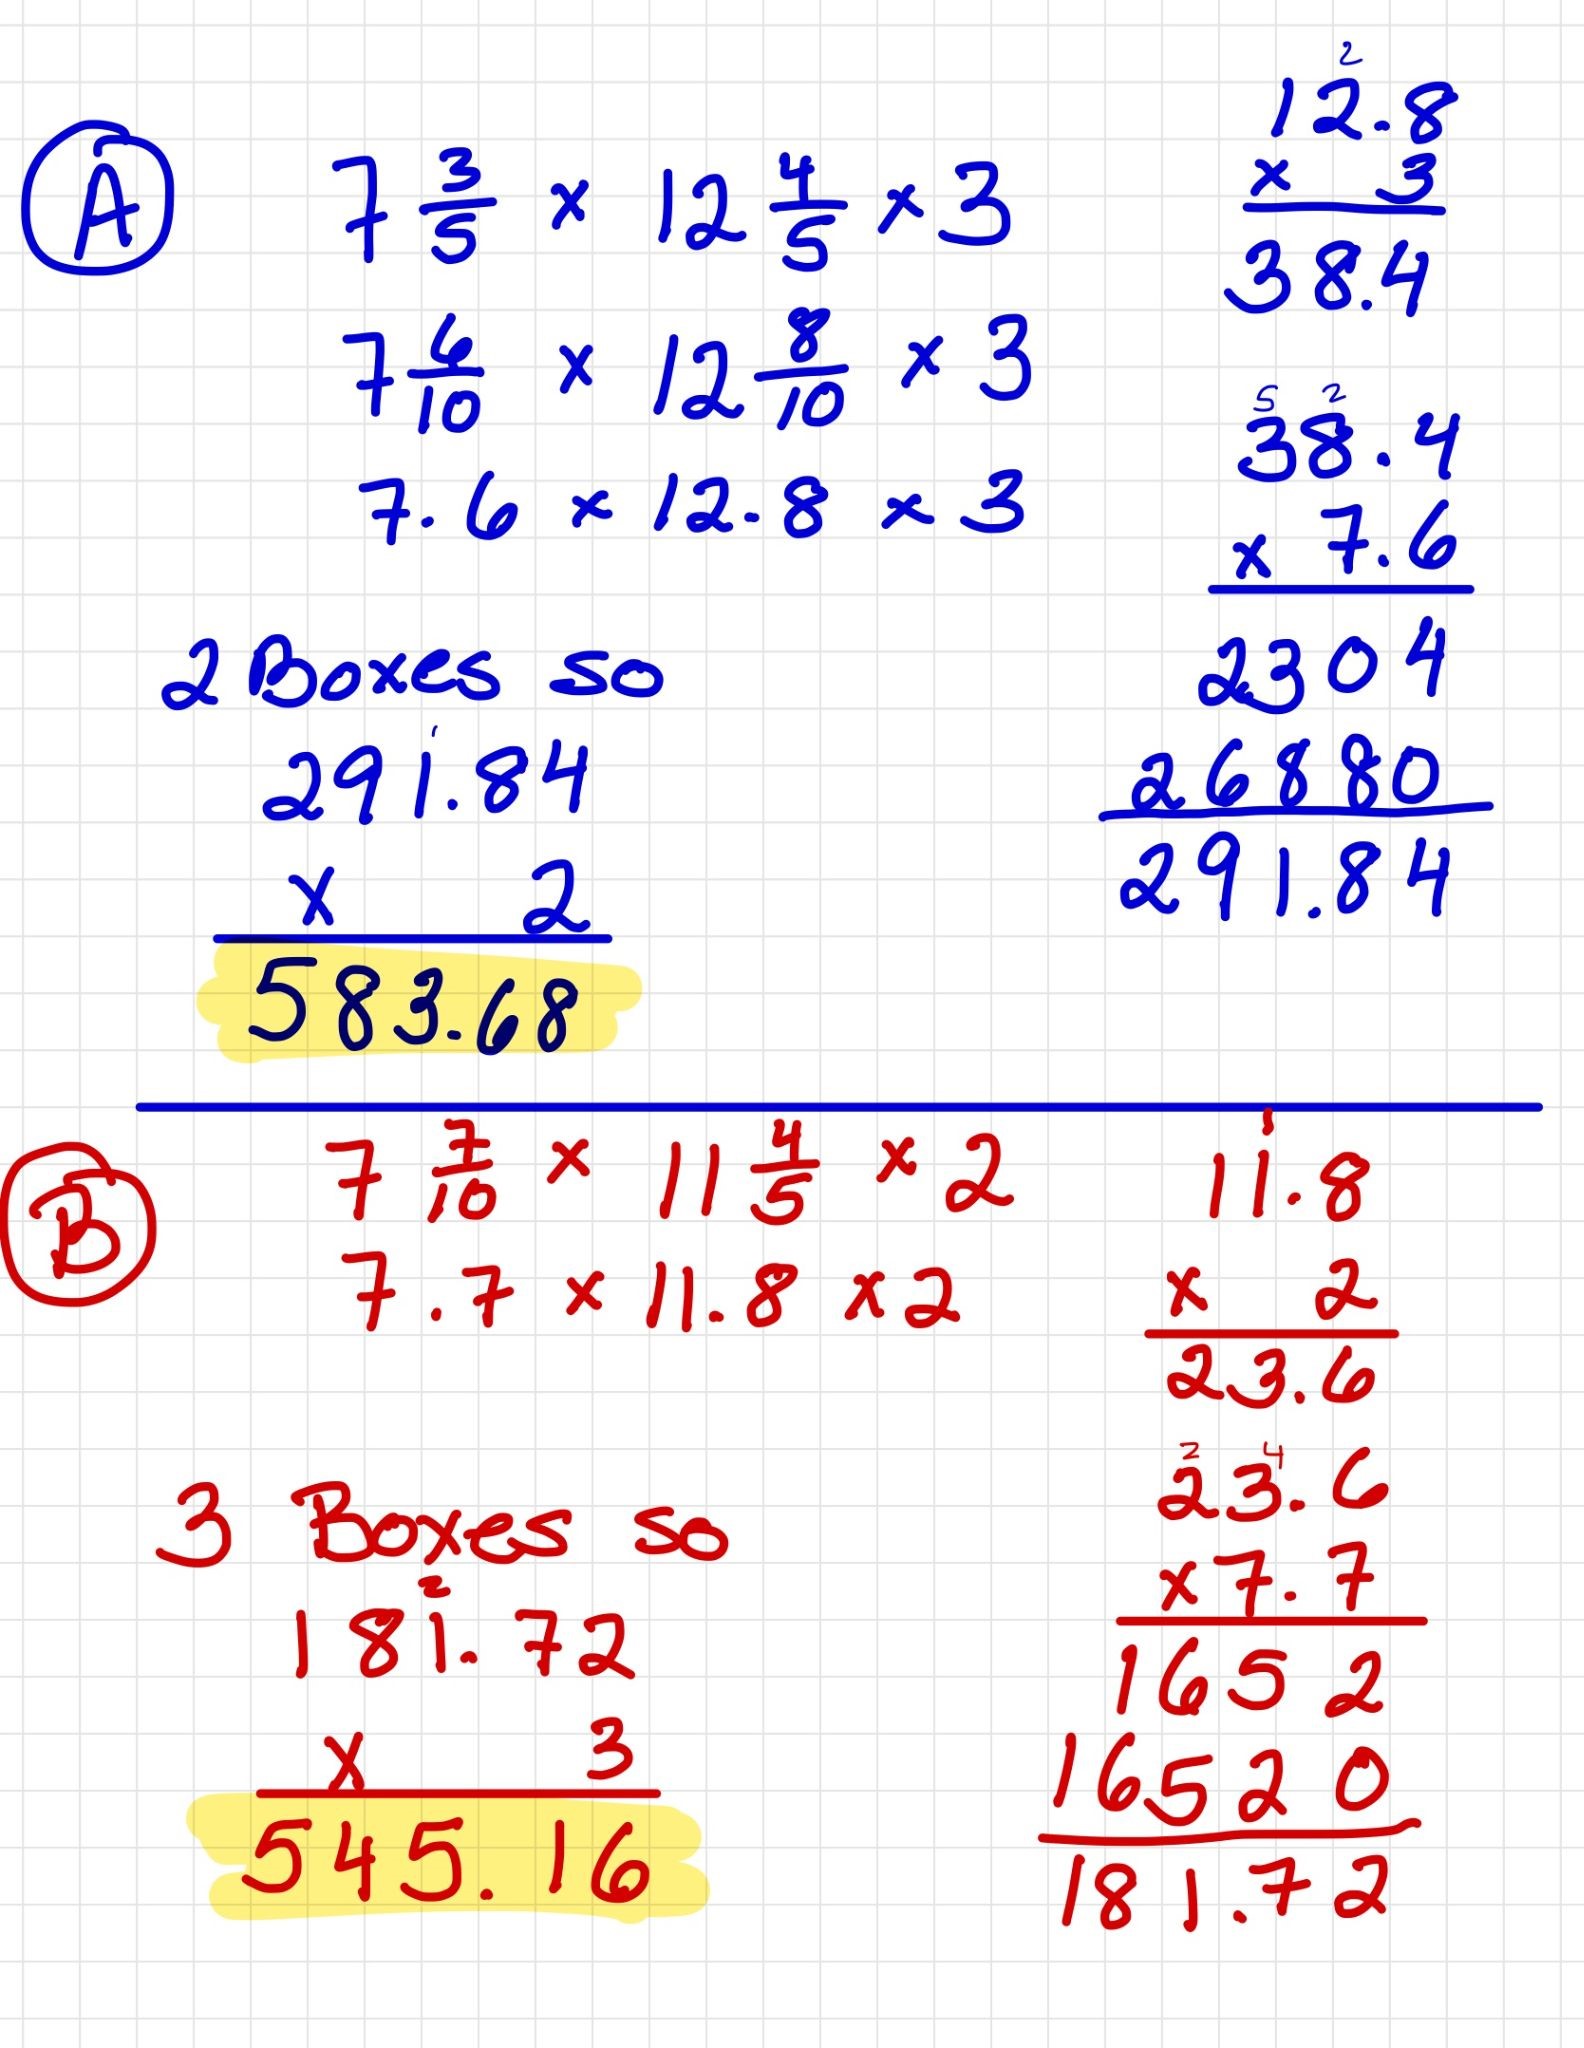 A
7 3/5 x 12 4/5 x 3
7 6/10 x 12 8/10 x 3
7.6 x 12.8 x 3
2
12.8
x 3
38.4
5 2
38.4
x 7.6
2304
26880
291.84
2 Boxes so
1
291.84
x 2
583.68
B
7 7/10 x 11 4/5 x 2
7.7 x 11.8 x 2
1
11.8
x 2
23.6
2 4
23.6
x 7.7
1652
16520
181.72
3 Boxes so
2
181.72
x 3
545.16